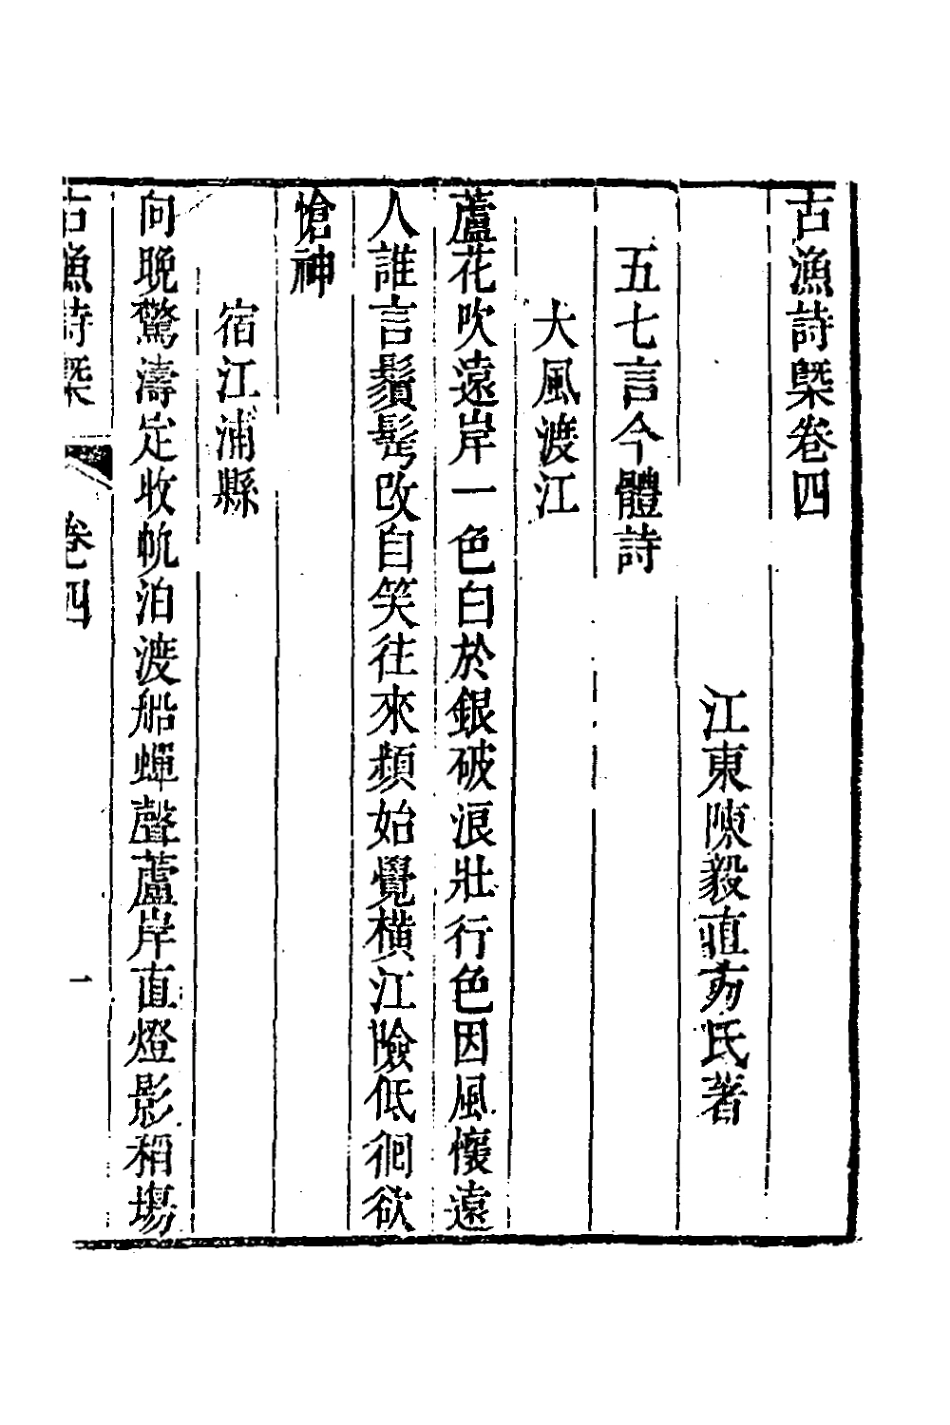 古漁詩槩卷四
江東陳毅直方氏著
五七言今體詩
大風渡江
蘆花吹遠岸一色白於銀破浪壯行色因風懷遠
人誰言鬚髩改自笑往來頻始覺橫江險低徊欲
愴神
宿江浦縣
向晚驚濤定收帆泊渡船蟬聲蘆岸直燈影稻場
古漁詩槩 卷四 一